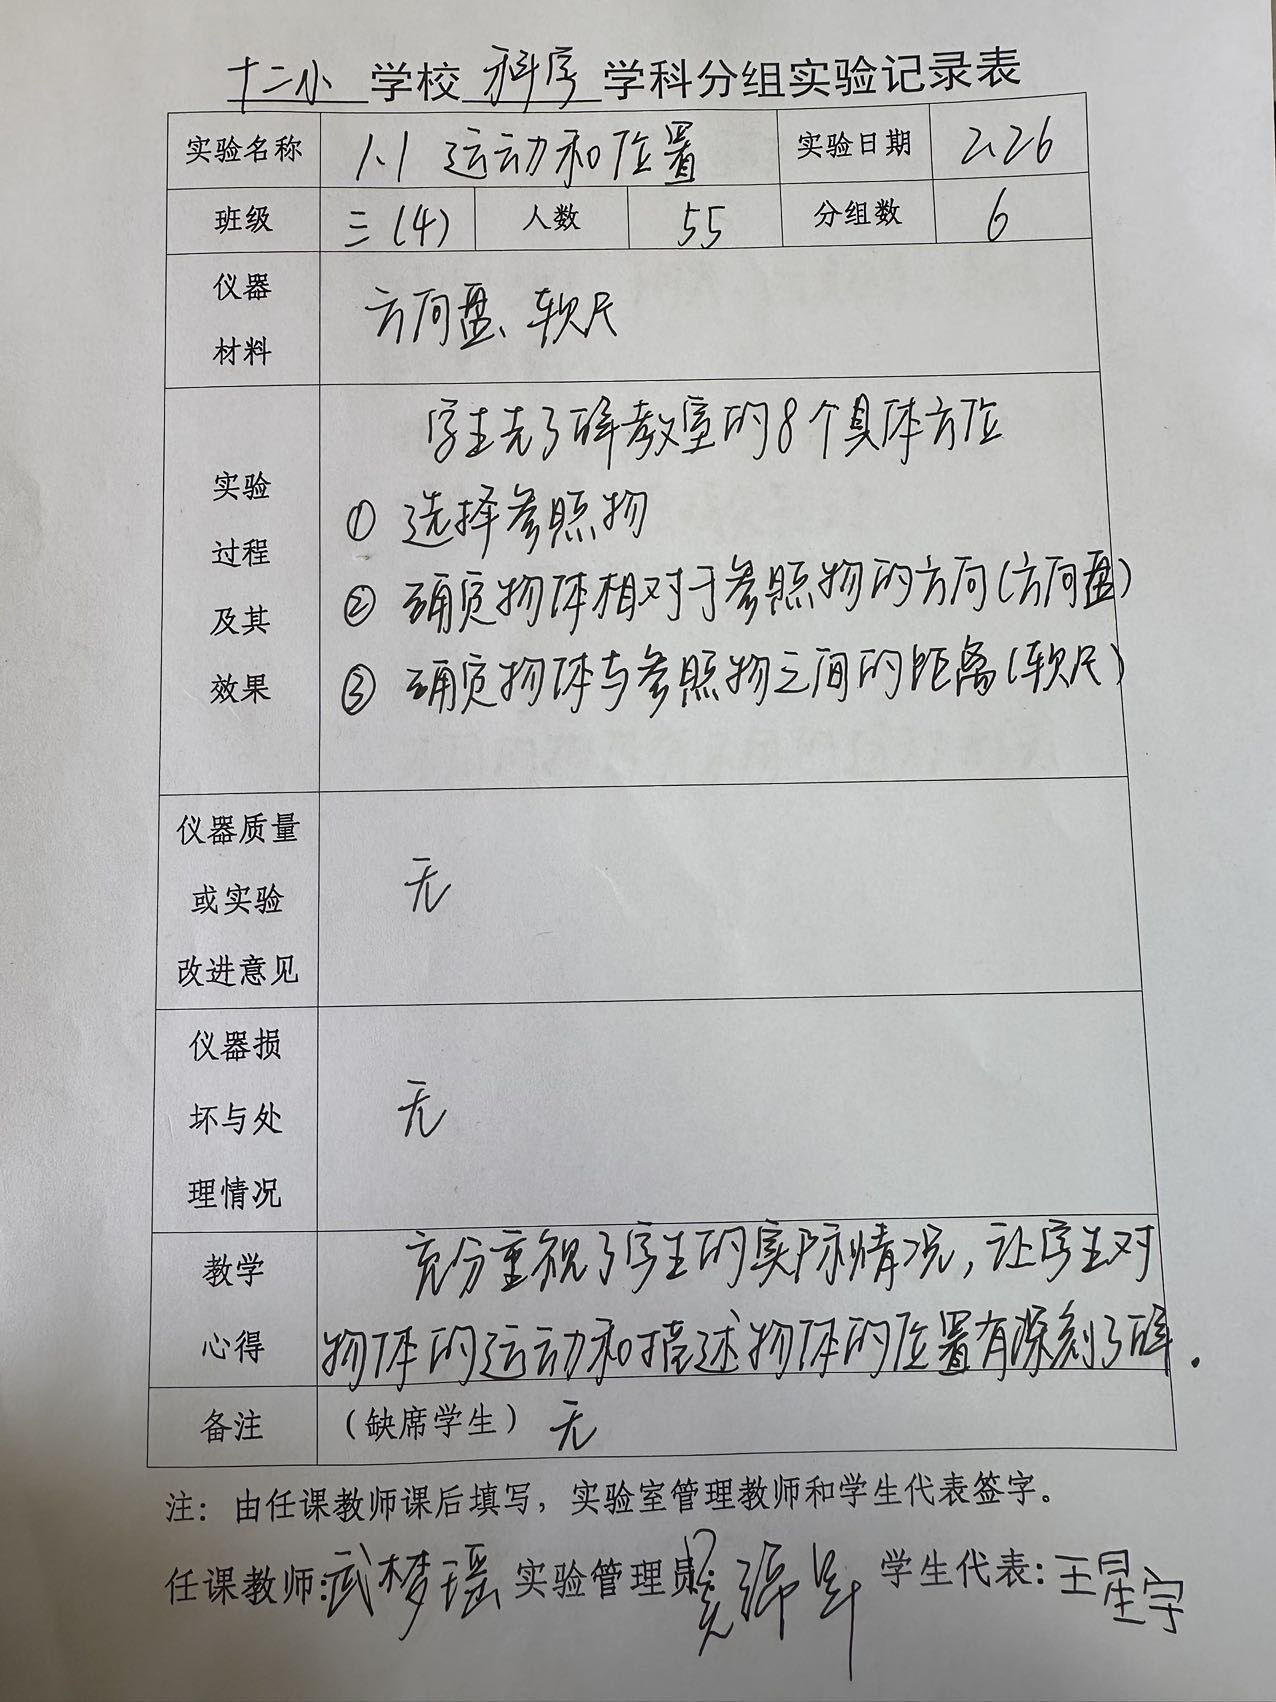 十二小 学校 科学 学科分组实验记录表
实验名称 1.1 运动和位置 实验日期 2.26
班级 三(4) 人数 55 分组数 6
仪器
材料
方向盘、软尺
实验
过程
及其
效果
学生先了解教室的8个具体方位
① 选择参照物
② 确定物体相对于参照物的方向(方向盘)
③ 确定物体与参照物之间的距离(软尺)
仪器质量
或实验
改进意见
无
仪器损
坏与处
理情况
无
教学
心得
充分重视了学生的实际情况,让学生对
物体的运动和描述物体的位置有深刻了解.
备注 (缺席学生) 无
注：由任课教师课后填写，实验室管理教师和学生代表签字。
任课教师:武梦瑶 实验管理员: 学生代表:王星宇